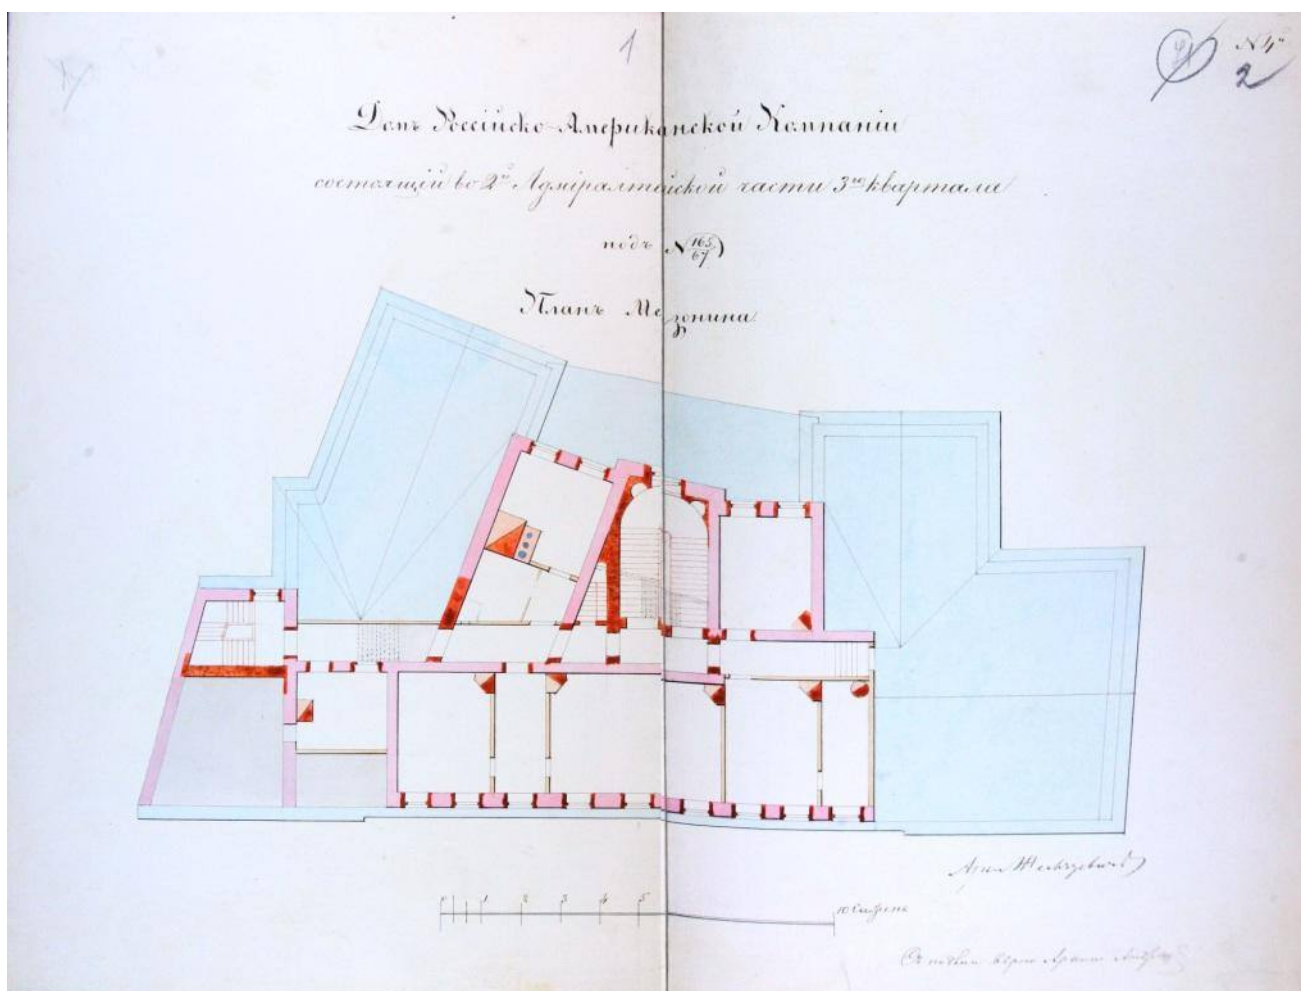 1
N 4й
2
Домъ Россійско-Американской Компаніи
состоящій во 2й Адмиралтейской части 3го квартала
подъ N 165/67
Планъ Мезонина
1 2 3 4 5 10 Сажень
Арх.
Съ подлин. вѣрно Архит.